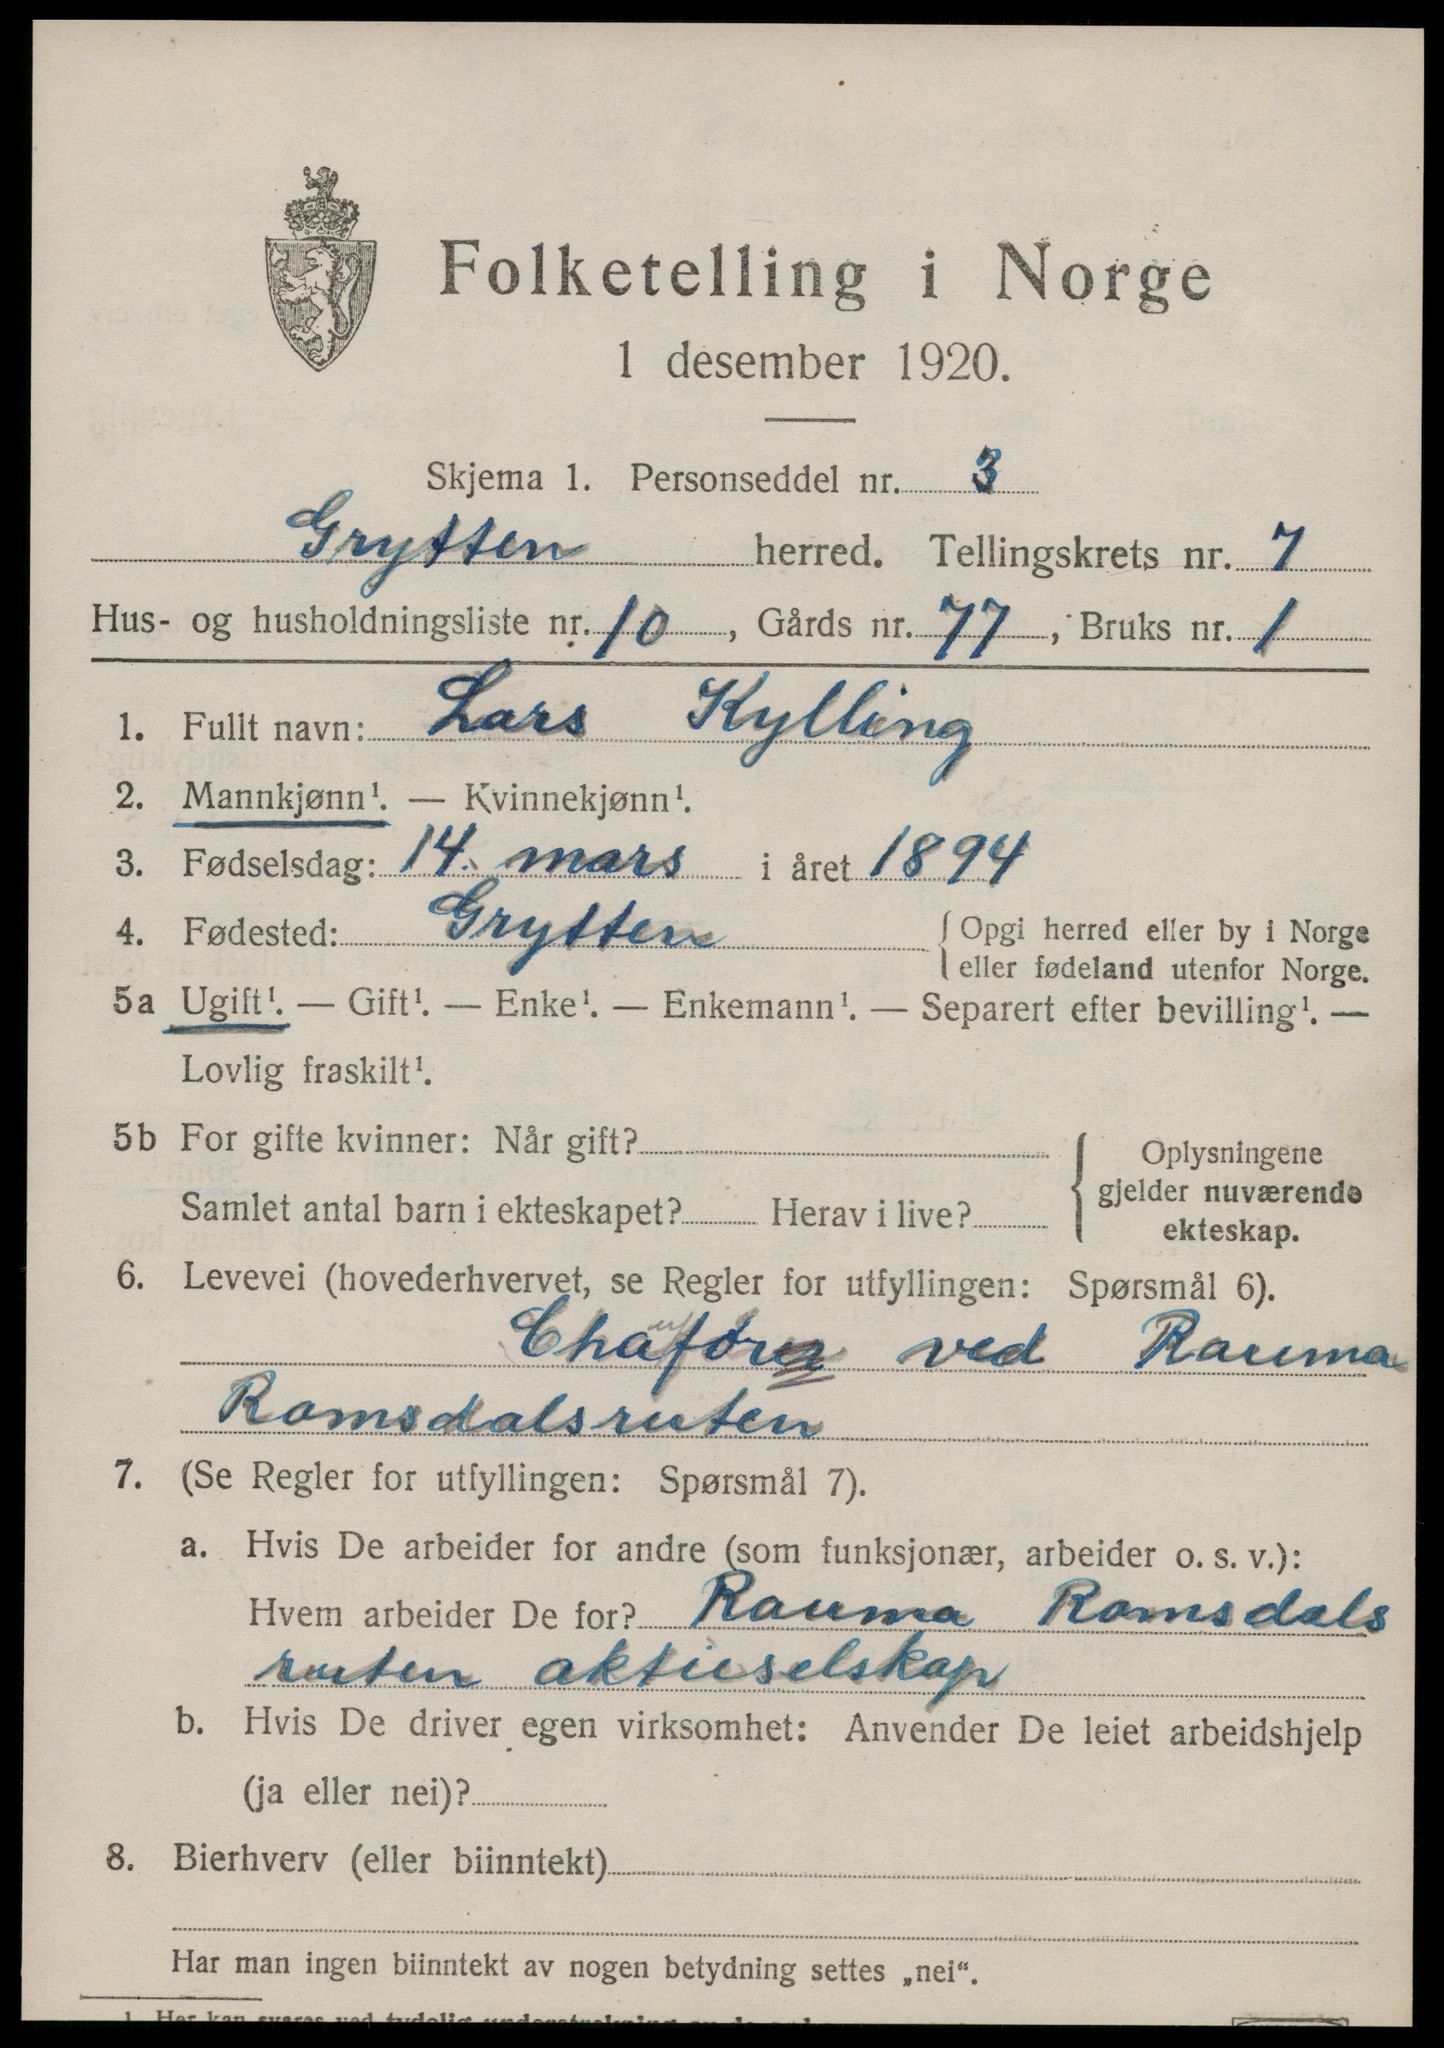 Folketelling i Norge
1 desember 1920.
Skjema 1. Personseddel nr. 3
Grytten herred. Tellingskrets nr. 7
Hus- og husholdningsliste nr. 10, Gårds nr. 77, Bruks nr. 1
1. Fullt navn: Lars Kylling
2. Mannkjønn¹. — Kvinnekjønn¹.
3. Fødselsdag: 14. mars i året 1894
4. Fødested: Grytten { Opgi herred eller by i Norge
eller fødeland utenfor Norge.
5a Ugift¹. — Gift¹. — Enke¹. — Enkemann¹. — Separert efter bevilling¹. —
Lovlig fraskilt¹.
5b For gifte kvinner: Når gift?
Samlet antal barn i ekteskapet? Herav i live?
{ Oplysningene
gjelder nuværende
ekteskap.
6. Levevei (hovederhvervet, se Regler for utfyllingen: Spørsmål 6).
ved Rauma
Romsdalsruten
7. (Se Regler for utfyllingen: Spørsmål 7).
a. Hvis De arbeider for andre (som funksjonær, arbeider o. s. v.):
Hvem arbeider De for? Rauma Romsdals
ruten aktieselskap
b. Hvis De driver egen virksomhet: Anvender De leiet arbeidshjelp
(ja eller nei)?
8. Bierhverv (eller biinntekt)
Har man ingen biinntekt av nogen betydning settes „nei“.